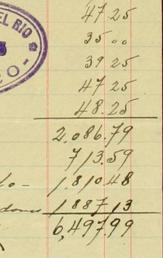 EL RIO
O-
47.25
35 00
39 25
47.25
48.25
2.086.79
713.59
1.810.48
1.887.13
6,497.99